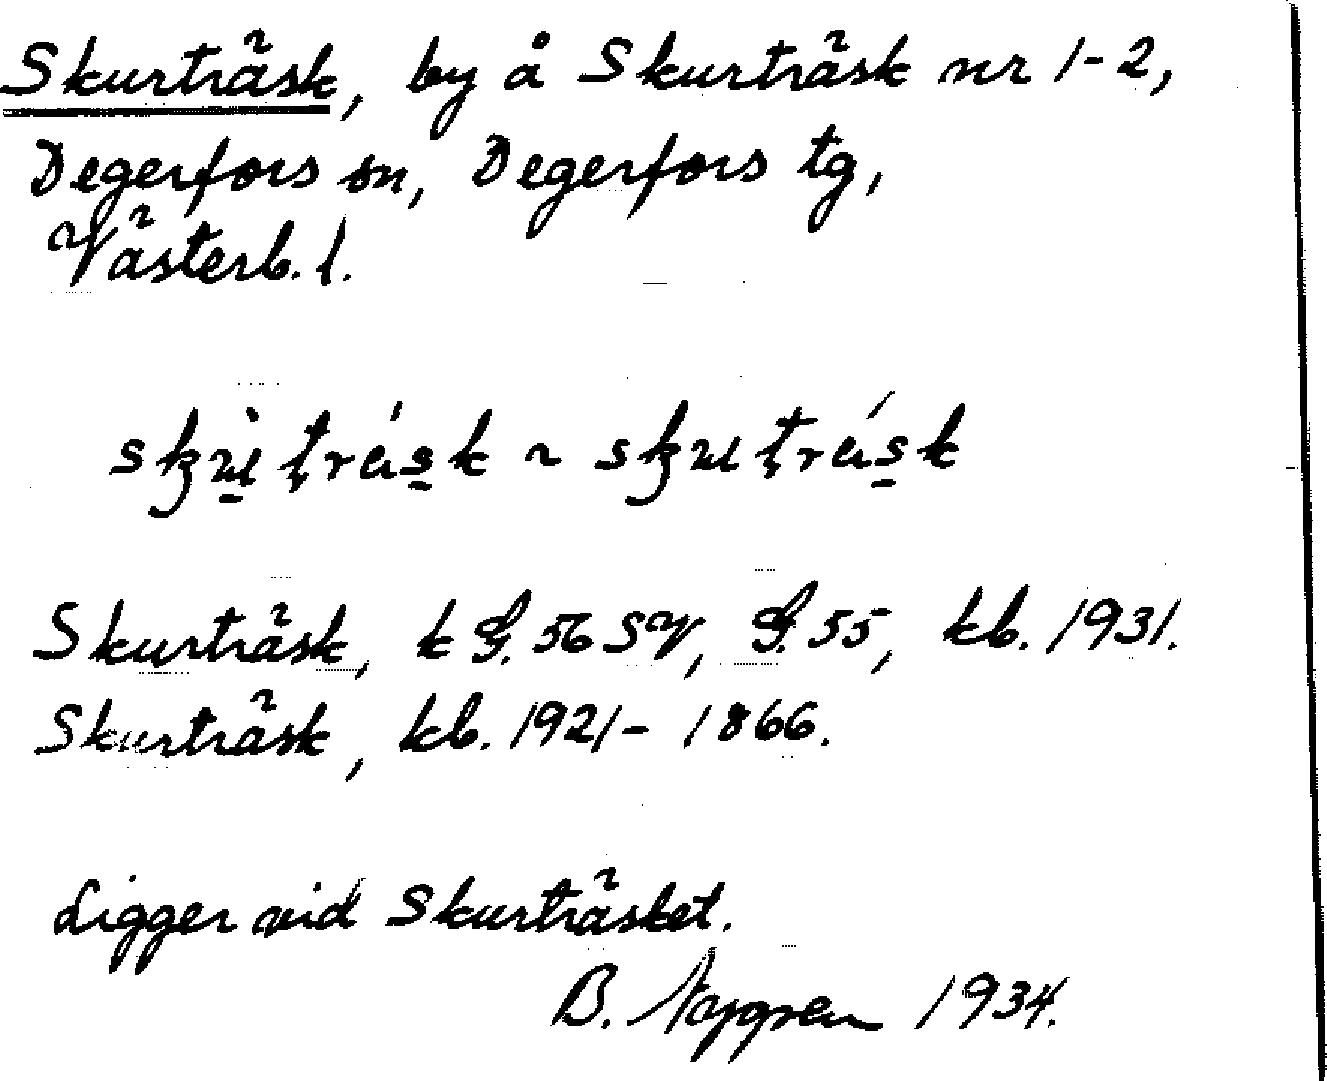 Skurträsk, by å Skurträsk nr 1-2,
Degerfors sn, Degerfors tg,
Västerb. l.
Skurträsk, k G. 56 SV, G. 55, kb. 1931.
Skurträsk, kb. 1921-1866.
Ligger vid Skurträsket.
B. Nygren 1934.